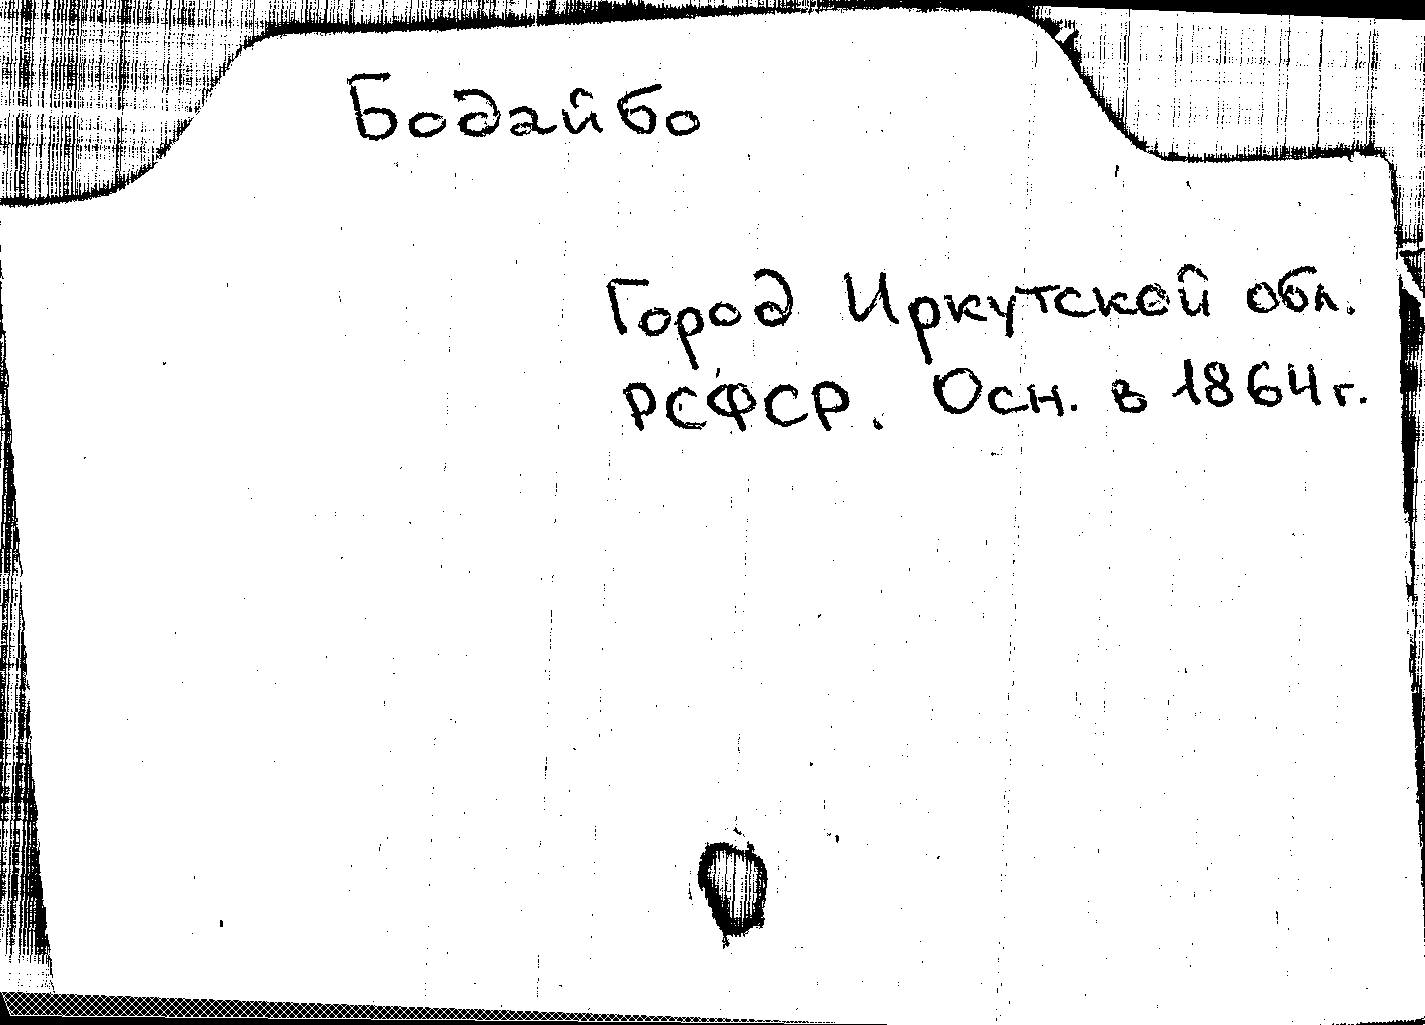 Бодайбо
Город Иркутской обл.
РСФСР. Осн. в 1864 г.